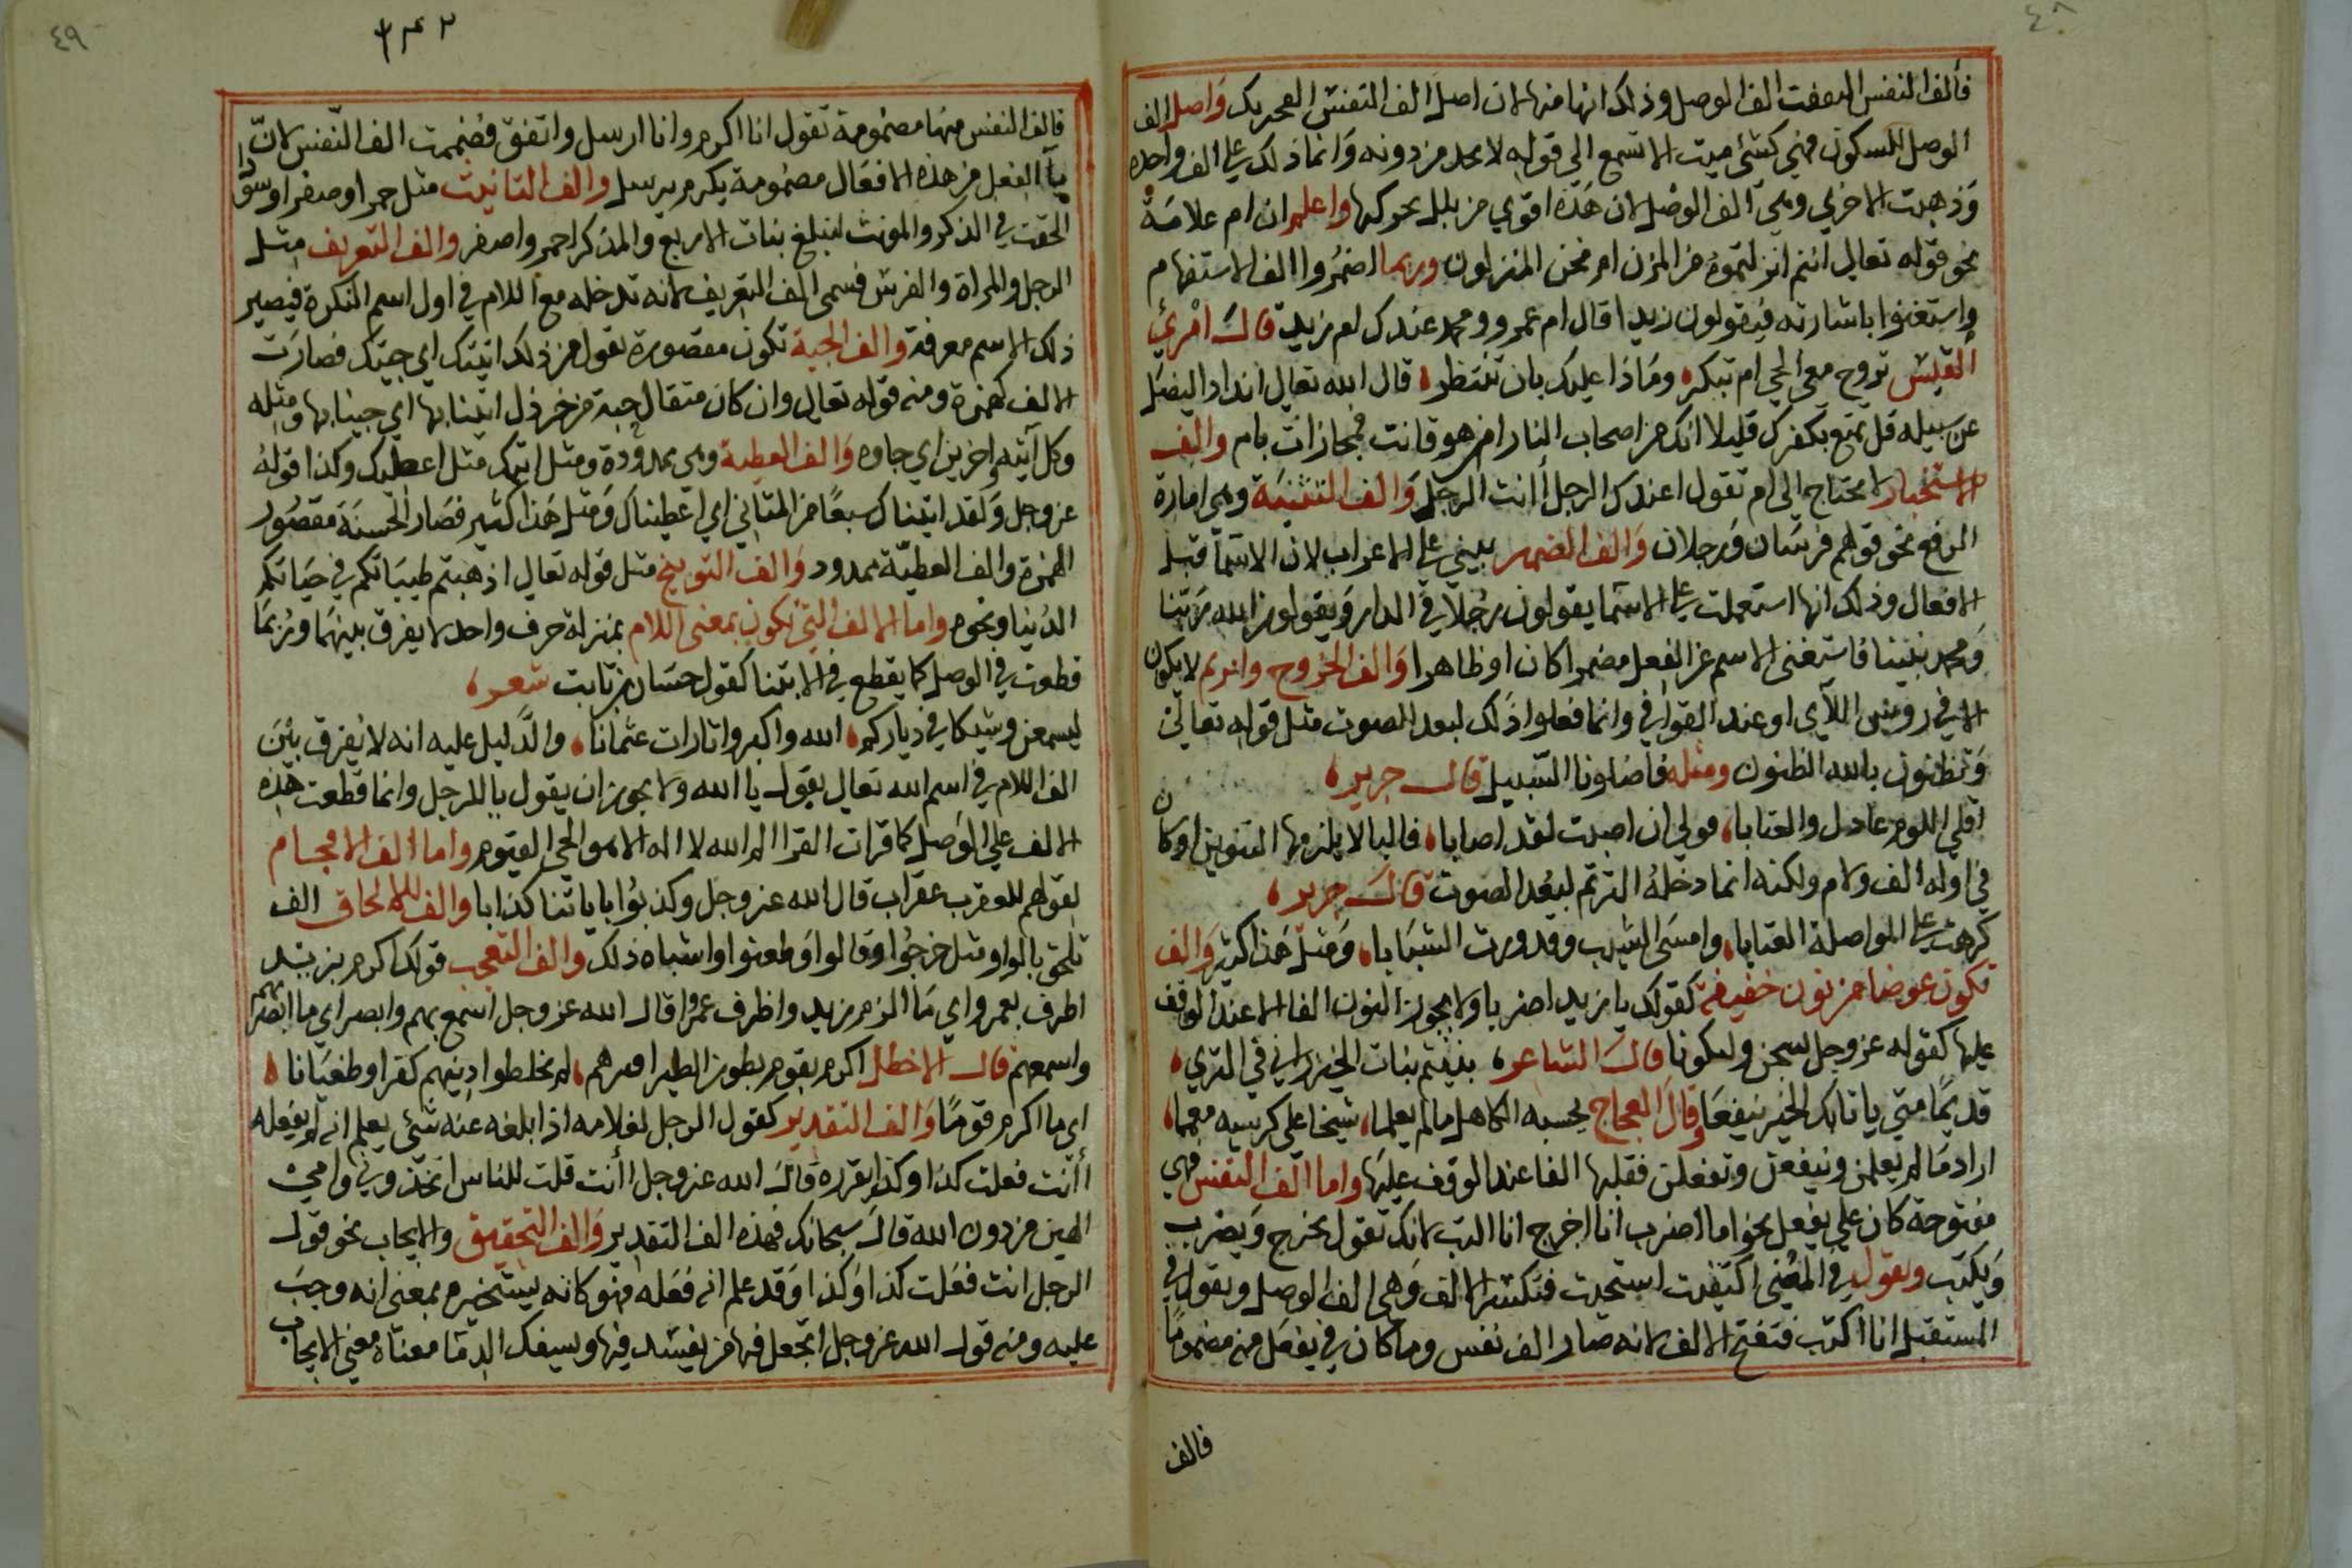 ٤٨
فألف النفس البعفت الف الوصل وذلك انها منها لان اصل الف التفنس التحريك واصل الف
الوصل للسكون فهي كشئ ميت الا تسمع الي قوله لا بجد من دونه وانما ذلك علي الف واحده
وذهبت الاخري وهي الف الوصل لان هذه اقوي من بلل بحركها واعلم ان ام علامة
نحو قوله تعالي ائنتم انزلتموه من المزن ام نحن المنزلون وربما اضمروا الف الاستفهام
واستغنوا باشارته فيقولون زيدا قال ام عمرو ومحمد عندك ام زيد قال امرئ
القيس تروح معي الحي ام تبتكر، وماذا عليك بان تنتظر، قال الله تعالي اندادا ليضل
عن سبيله قل تمتع بكفرك قليلا انك من اصحاب النار امن هو قانت فجازات بام والف
الاستخبار لا يحتاج الي ام تقول اعندك الرجل أانت الرجل والف التثنية وهي امارة
الرفع نحو قولهم فرسان ورجلان والف الضمير يبني علي الاعراب لان الاسما قبل
الافعال وذلك انها استعملت علي الاسما يقولون رجلا في الدار ويقولون الله ربنا
ومحمد نبينا فاستغني الاسم عن الفعل مضمرا كان او ظاهرا والف الخروج والترنم لا يكون
الا في رويس اللآي او عند القوافي وانما فعلوا ذلك لبعد الصوت مثل قوله تعالي
وتظنون بالله الظنون ومثله فاضلونا السبيل قال جرير،
اقلي اللوم عاذل والعتابا، قولي ان اصبت لقد اصابا، فالبا لا يلزمها التنوين او كان
في اوله الف ولام ولكنه انما دخله الترنم لبعد الصوت قال جرير،
كرهت علي المواصلة العتابا، وامسي الشيب وقد ورت الشبابا، ومثل هذا كثير والف
تكون عوضا من نون خفيفة كقولك يا زيد اضربا ولا يجوز النون الفا الا عند الوقف
عليها كقوله عز وجل ليسجن وليكونا قال الشاعر، نبتم نبات الخيزراني في الثري،
قديما متي ياتك الخير ينفعا وقال العجاج يحسبه الجاهل ما لم يعلما، شيخا علي كرسيه معمما،
اراد ما لم يعلمن وينفعن وتفعلن فقلبها الفا عند الوقف عليها واما الف النفس فهي
مفتوحة كان علي يفعل نحو اما اضرب انا اخرج انا اكتب لانك تقول يخرج ويضرب
ويكتب وتقول في المعني اكتفيت استحيت فتكسر الالف وهي الف الوصل وتقول في
المستقبل انا اكتب فتفتح الالف لانه صار الف نفس وما كان في يفعل منه مضموما
فالف
٤٩
٣٤٢
فالف النفس منها مضمومة تقول انا اكرم وانا ارسل واتفق فضممت الف النفس لان
ياء الفعل من هذه الافعال مضمومة يكرم يرسل والف التانيث مثل حمرا وصفرا وسودا
الحقت في الذكر والمونث لتبلغ بنات الاربع والمذكر احمر واصفر والف التعريف مثل
الرجل والمراة والفرس فسمي الف التعريف لانه تدخله مع اللام في اول اسم النكرة فيصير
ذلك الاسم معرفة والف الجية تكون مقصورة تقول من ذلك اتيتك اي جيتك فصارت
الالف كهمزة ومنه قوله تعالي وان كان مثقال حبة من خردل اتينا بها اي جينا بها ومثله
وكل آتيه اخرين اي جاوه والف العطية وهي ممدودة ومثل اتيك مثل اعطيك وكذا قوله
عز وجل ولقد اتيناك سبعا من المثاني اي اعطيناك ومثل هذا كثير فصار الحسنة مقصور
الهمزة والف العطية ممدود والف التوبيخ مثل قوله تعالي اذهبتم طيباتكم في حياتكم
الدنيا ونحوه واما الالف التي تكون بمعني اللام بمنزلة حرف واحد لا يفرق بينهما وربما
قطعت في الوصل كما يقطع في الابتدا كقول حسان بن ثابت شعر،
ليسمعن وشيكا في دياركم، الله واكبر واثارات عثمانا، والدليل عليه انه لا يفرق بين
الف اللام في اسم الله تعالي يقول يا الله ولا يجوز ان يقول يا الرجل وانما قطعت هذه
الالف علي الوصل كما قرات القرا الم الله لا اله الا هو الحي القيوم واما الف الاقحام
لقولهم للعقرب عقراب قال الله عز وجل وكذبوا باياتنا كذابا والف الالحاق الف
تلحق بالواو مثل خرجوا وقالوا وطعنوا واشباه ذلك والف التعجب قولك اكرم بزيد
اظرف بعمرو اي ما اكرم زيد واظرف عمرا قال الله عز وجل اسمع بهم وابصر اي ما ابصرهم
واسمعهم قال الاخطل اكرم بقوم بطون الطير اقبرهم، لم يخلطوا دينهم كفرا وطغيانا،
اي ما اكرم قوما والف التقدير كقول الرجل لغلامه اذا ابلغه عنه شئ يعلم انه لم يفعله
أأنت فعلت كذا وكذا يقرره قال الله عز وجل اأنت قلت للناس اتخذوني وامي
الهين من دون الله قال سبحانك فهذه الف التقدير والف التحقيق والايجاب نحو قول
الرجل انت فعلت كذا وكذا وقد علم انه فعله فهو كانه يستخبره بمعني انه وجب
عليه ومنه قول الله عز وجل اتجعل فيها من يفسد فيها ويسفك الدما معناه معني الايجاب